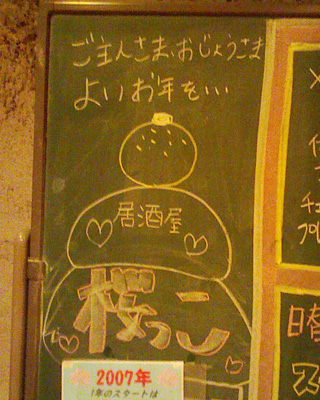 ご主人さま、おじょうさま
よいお年を…
居酒屋
桜っこ
で
2007年
1年のスタートは
晴